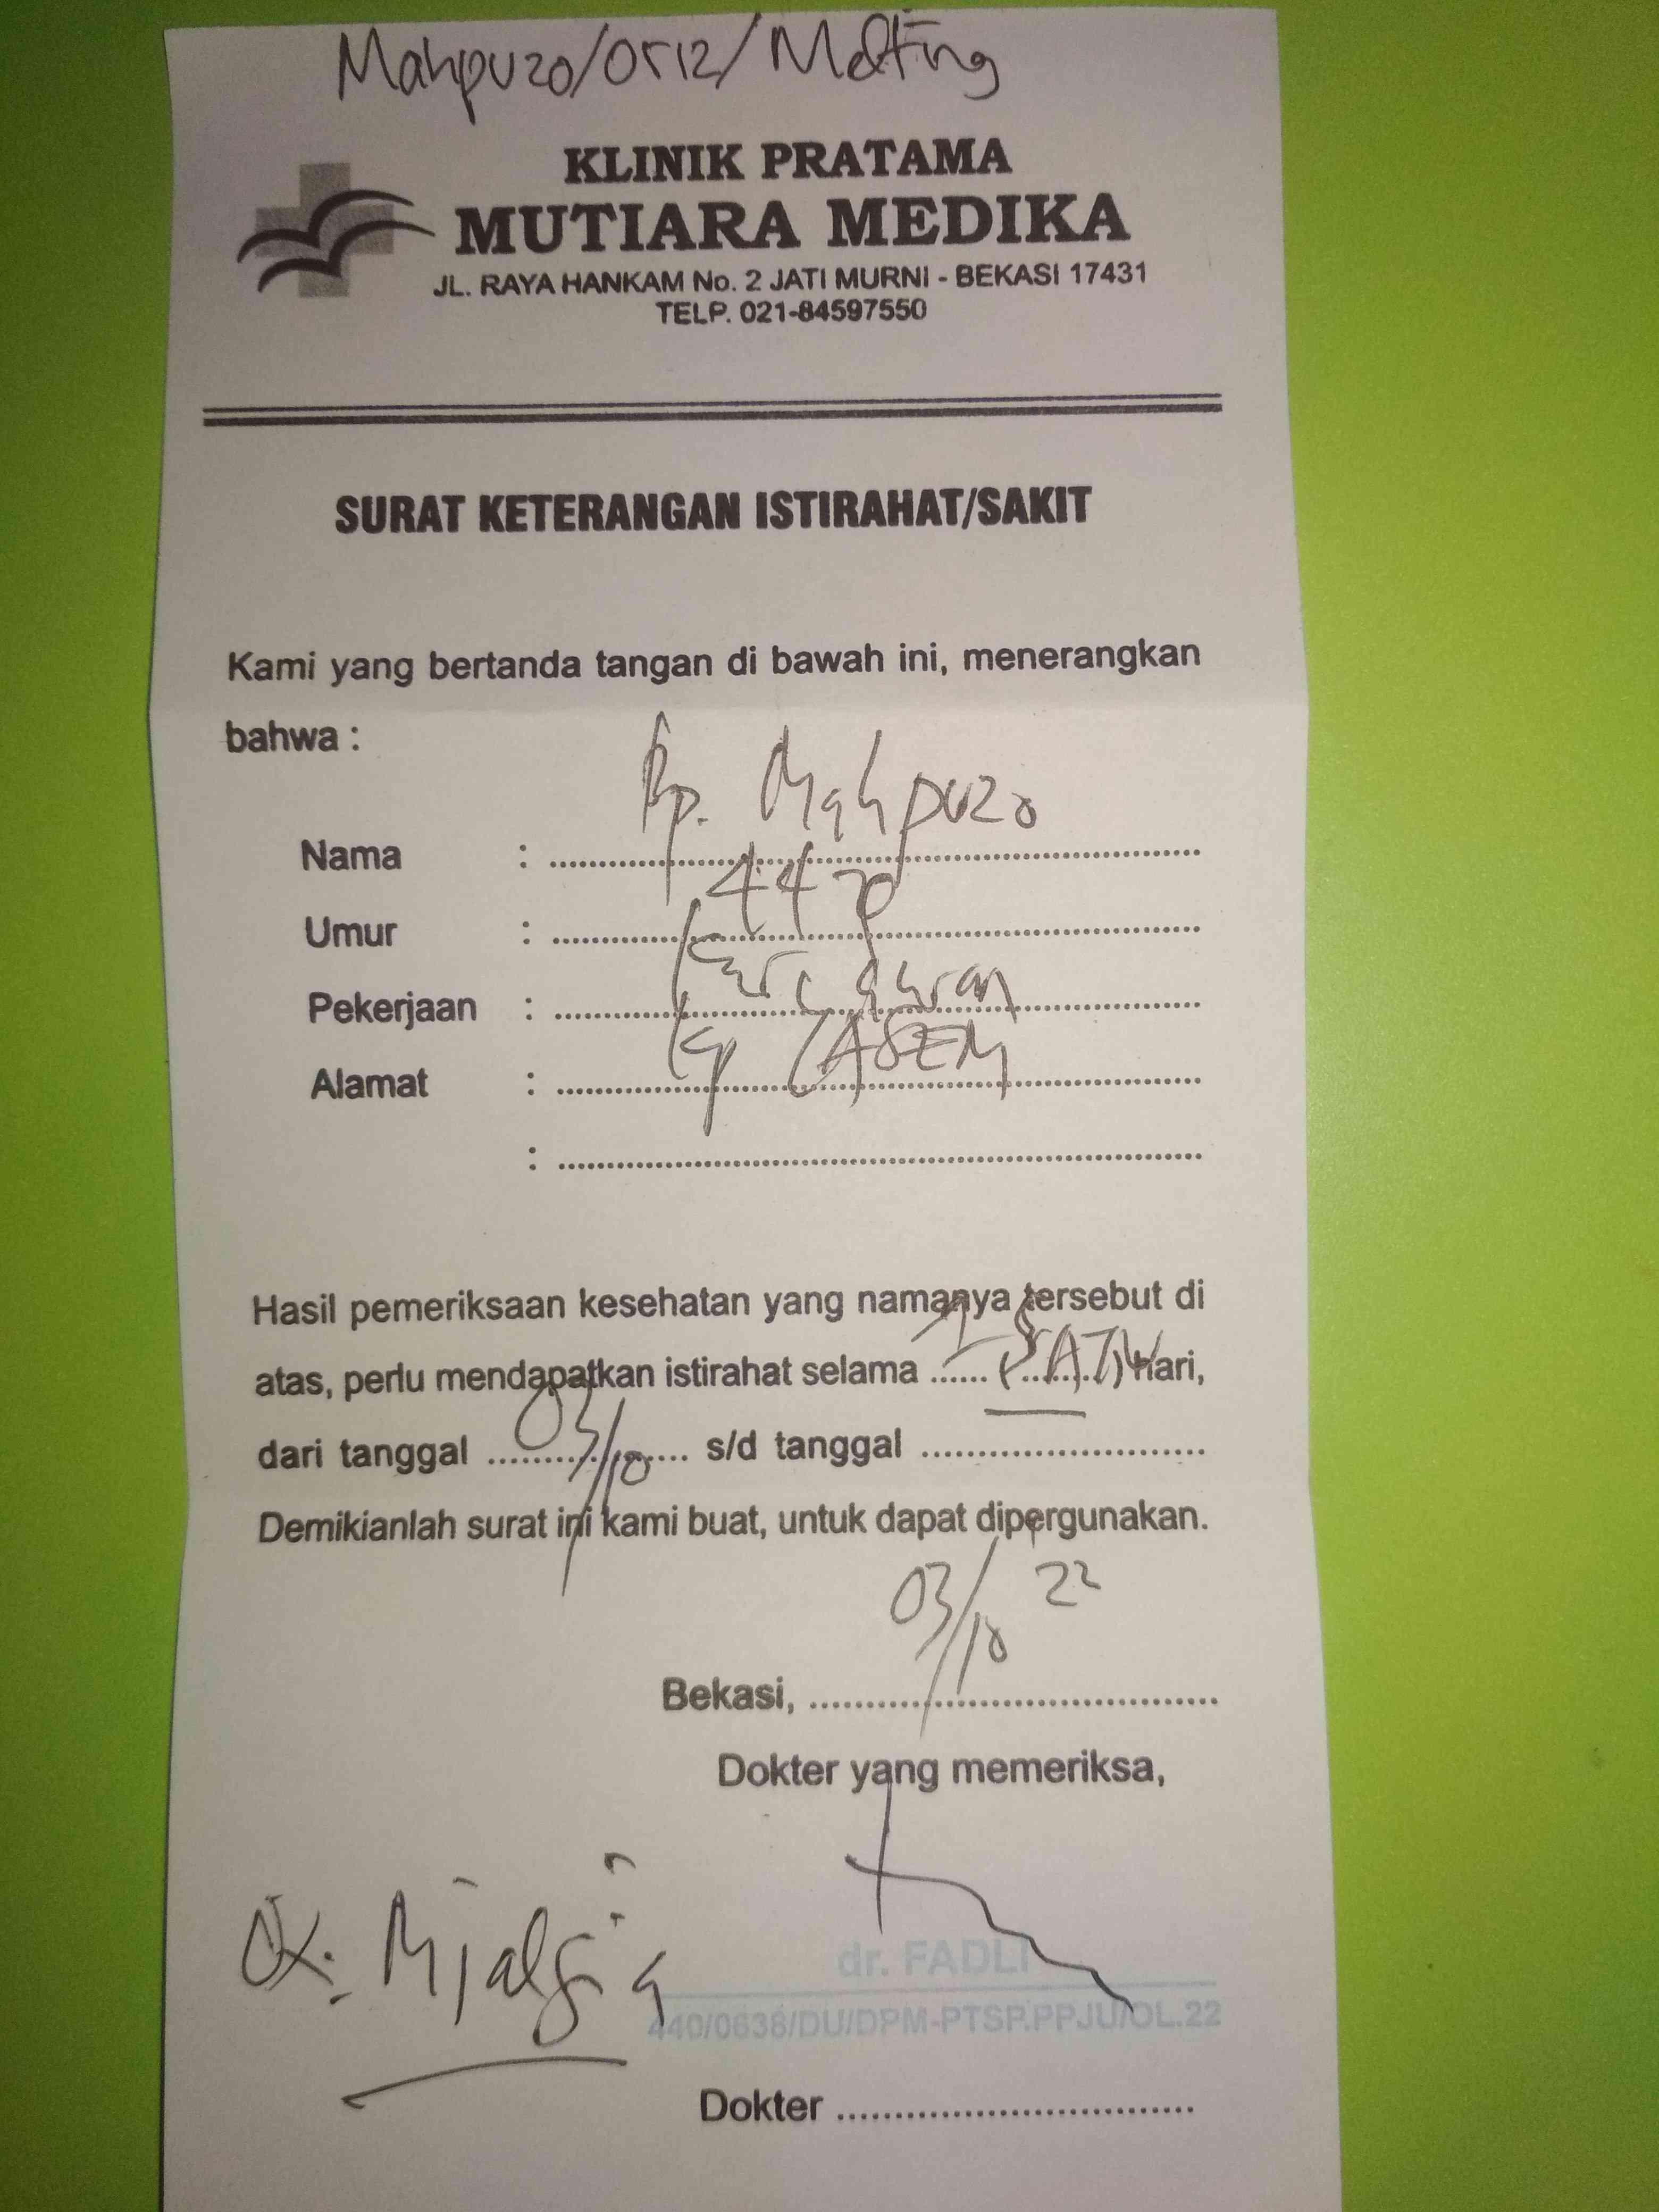 Mahpuzo/0512/Melting
KLINIK PRATAMA
MUTIARA MEDIKA
JL. RAYA HANKAM No. 2 JATI MURNI - BEKASI 17431
TELP. 021-84597550
SURAT KETERANGAN ISTIRAHAT/SAKIT
Kami yang bertanda tangan di bawah ini, menerangkan
bahwa :
Nama : Bp. Mahpuzo
Umur : 44
Pekerjaan : Karyawan
Alamat : Kp ASEM
:
Hasil pemeriksaan kesehatan yang namanya tersebut di
atas, perlu mendapatkan istirahat selama 1 (SATU) Hari,
dari tanggal 03/10 s/d tanggal
Demikianlah surat ini kami buat, untuk dapat dipergunakan.
Bekasi, 03/10 22
Dokter yang memeriksa,
Dx: Mialgia
dr. FADLI
440/0638/DU/DPM-PTSP.PPJU/OL.22
Dokter